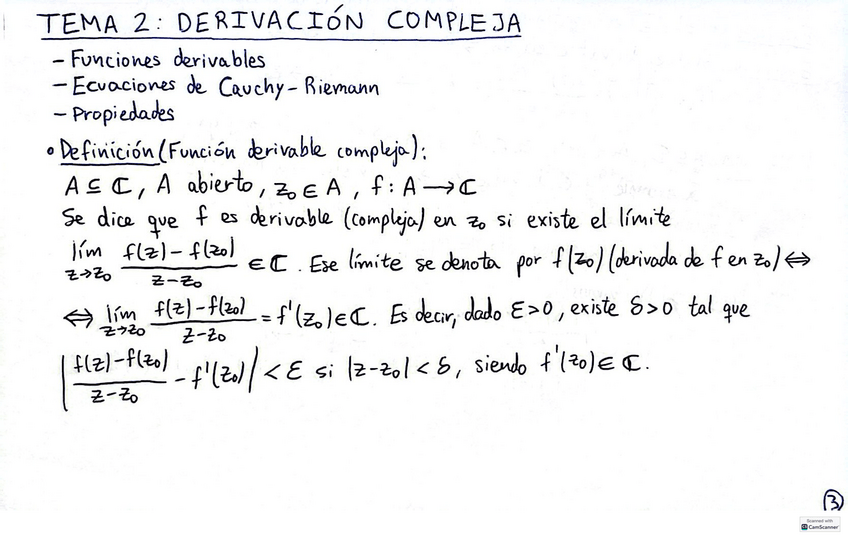 TEMA 2: DERIVACIÓN COMPLEJA
- Funciones derivables
- Ecuaciones de Cauchy-Riemann
- Propiedades
• Definición (Función derivable compleja):
A ⊆ ℂ, A abierto, z₀ ∈ A, f: A → ℂ
Se dice que f es derivable (compleja) en z₀ si existe el límite
lím_{z→z₀} (f(z) - f(z₀))/(z - z₀) ∈ ℂ. Ese límite se denota por f(z₀) (derivada de f en z₀) ⇔
⇔ lím_{z→z₀} (f(z) - f(z₀))/(z - z₀) = f'(z₀) ∈ ℂ. Es decir, dado ε > 0, existe δ > 0 tal que
|(f(z) - f(z₀))/(z - z₀) - f'(z₀)| < ε si |z - z₀| < δ, siendo f'(z₀) ∈ ℂ.
3
Scanned with
CS CamScanner